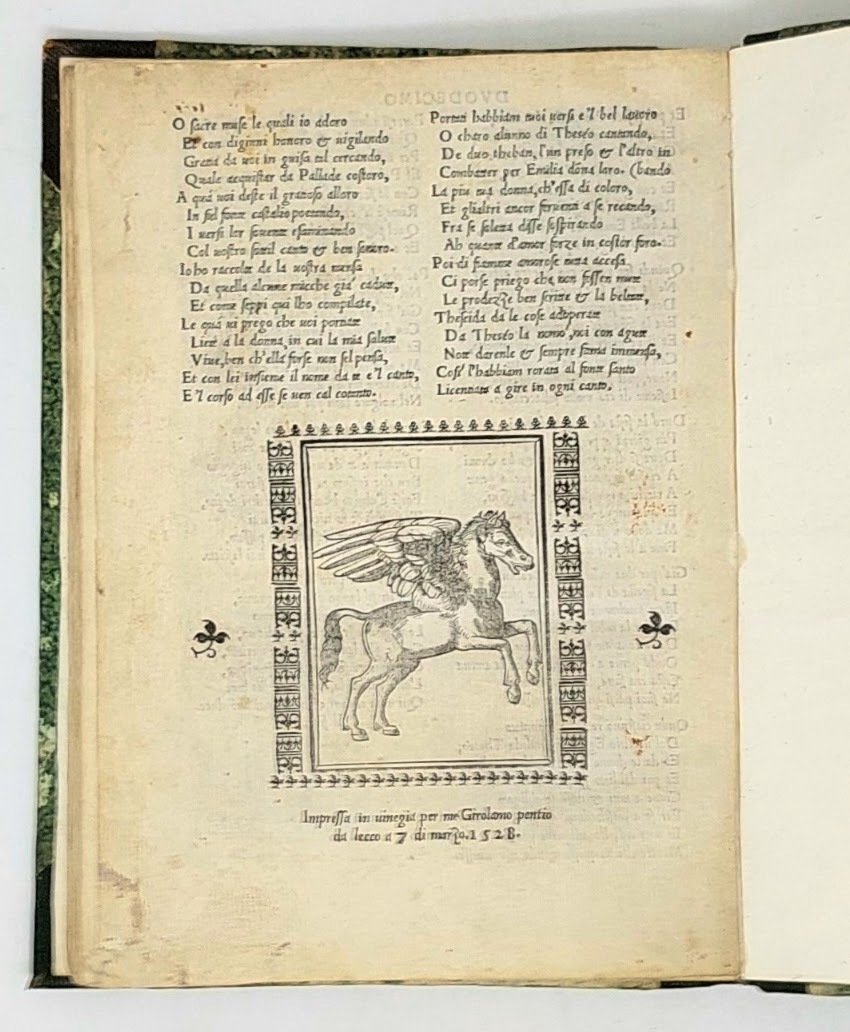 O sacre muse le quali io adoro
Et con digiuni honoro & uigilando
Gratia da uoi in guisa tal cercando,
Quale acquistar da Pallade costoro,
A quai uoi deste il gratioso alloro
In sul fonte castalio poetando,
I uersi lor souente esaminando
Col uostro sottil canto & ben sonoro.
Io ho raccolte de la uostra mensa
Da quella alcune micche gia' cadute,
Et come seppi qui l'ho compilate,
Le quai ui prego che uoi portiate
Liete a la donna, in cui la mia salute
Viue, ben ch'ella forse non sel pensa,
Et con lei insieme il nome date e'l canto,
E'l corso ad esse se uen cal cotanto.
Portati habbiam tuoi uersi e'l bel lauoro
O charo alunno di Theseo cantando,
De duo theban, l'un preso & l'altro in
Combatter per Emilia dōna loro. (bando
La piu tua donna, ch'essa di coloro,
Et gli altri ancor feruenti a se recando,
Fra se soletta disse sospirando
Ah quante d'amor forze in costor foro.
Poi di fiamme amorose tutta accesa
Ci porse priego che non fossen mute
Le prodezze ben scritte & la beltate,
Theseida da le cose adoperate
Da Theseo la nomo', noi con agute
Note darenle & sempre fama immensa,
Cosi' l'habbiam rorata al fonte santo
Licentiata a gire in ogni canto.
Impressa in uinegia per me Girolamo pentio
da lecco a 7 di marzo. 1528.